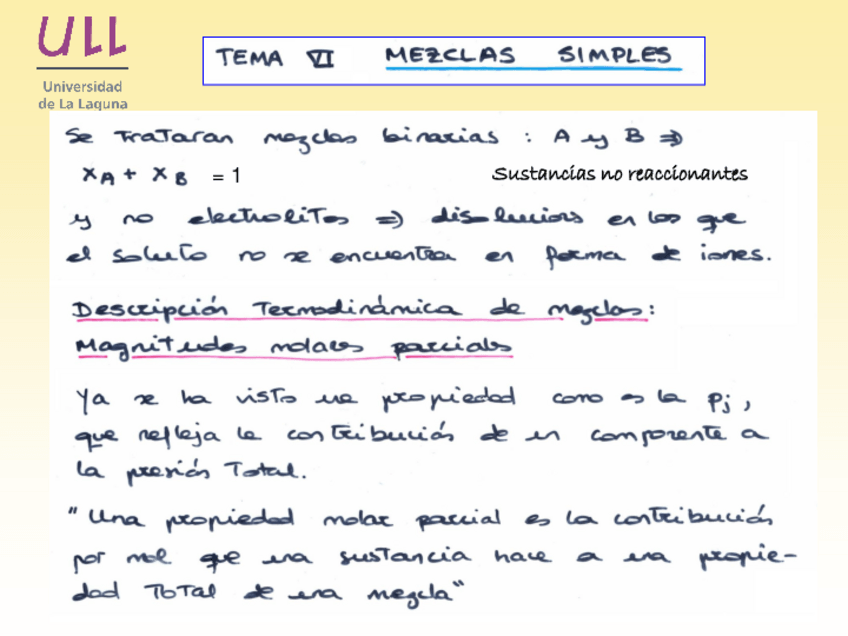 ULL
Universidad
de La Laguna
TEMA VI MEZCLAS SIMPLES
Se Trataran mezclas binarias : A y B ⇒
xA + xB = 1
Sustancias no reaccionantes
y no electrolitos ⇒ disoluciones en los que
el soluto no se encuentra en forma de iones.
Descripción Termodinámica de mezclas:
Magnitudes molares parciales
Ya se ha visto una propiedad como es la Pj,
que refleja la contribución de un componente a
la presión Total.
"Una propiedad molar parcial es la contribución
por mol que una sustancia hace a una propie-
dad Total de una mezcla"